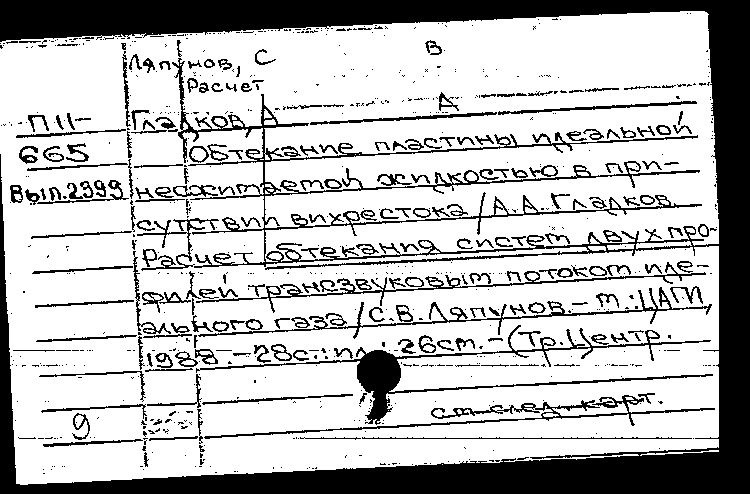 Ляпунов, С В
Расчет
П11- Гладков, А А
665 Обтекание пластины идеальной
Вып.2399 несжимаемой жидкостью в при-
сутствии вихрестока / А.А. Гладков.
Расчет обтекания систем двух про-
филей трансзвуковым потоком иде-
ального газа / С.В. Ляпунов. - М.: ЦАГИ,
1988. - 28с.: ил.; 26см. - (Тр. Центр.
см след. карт.
9